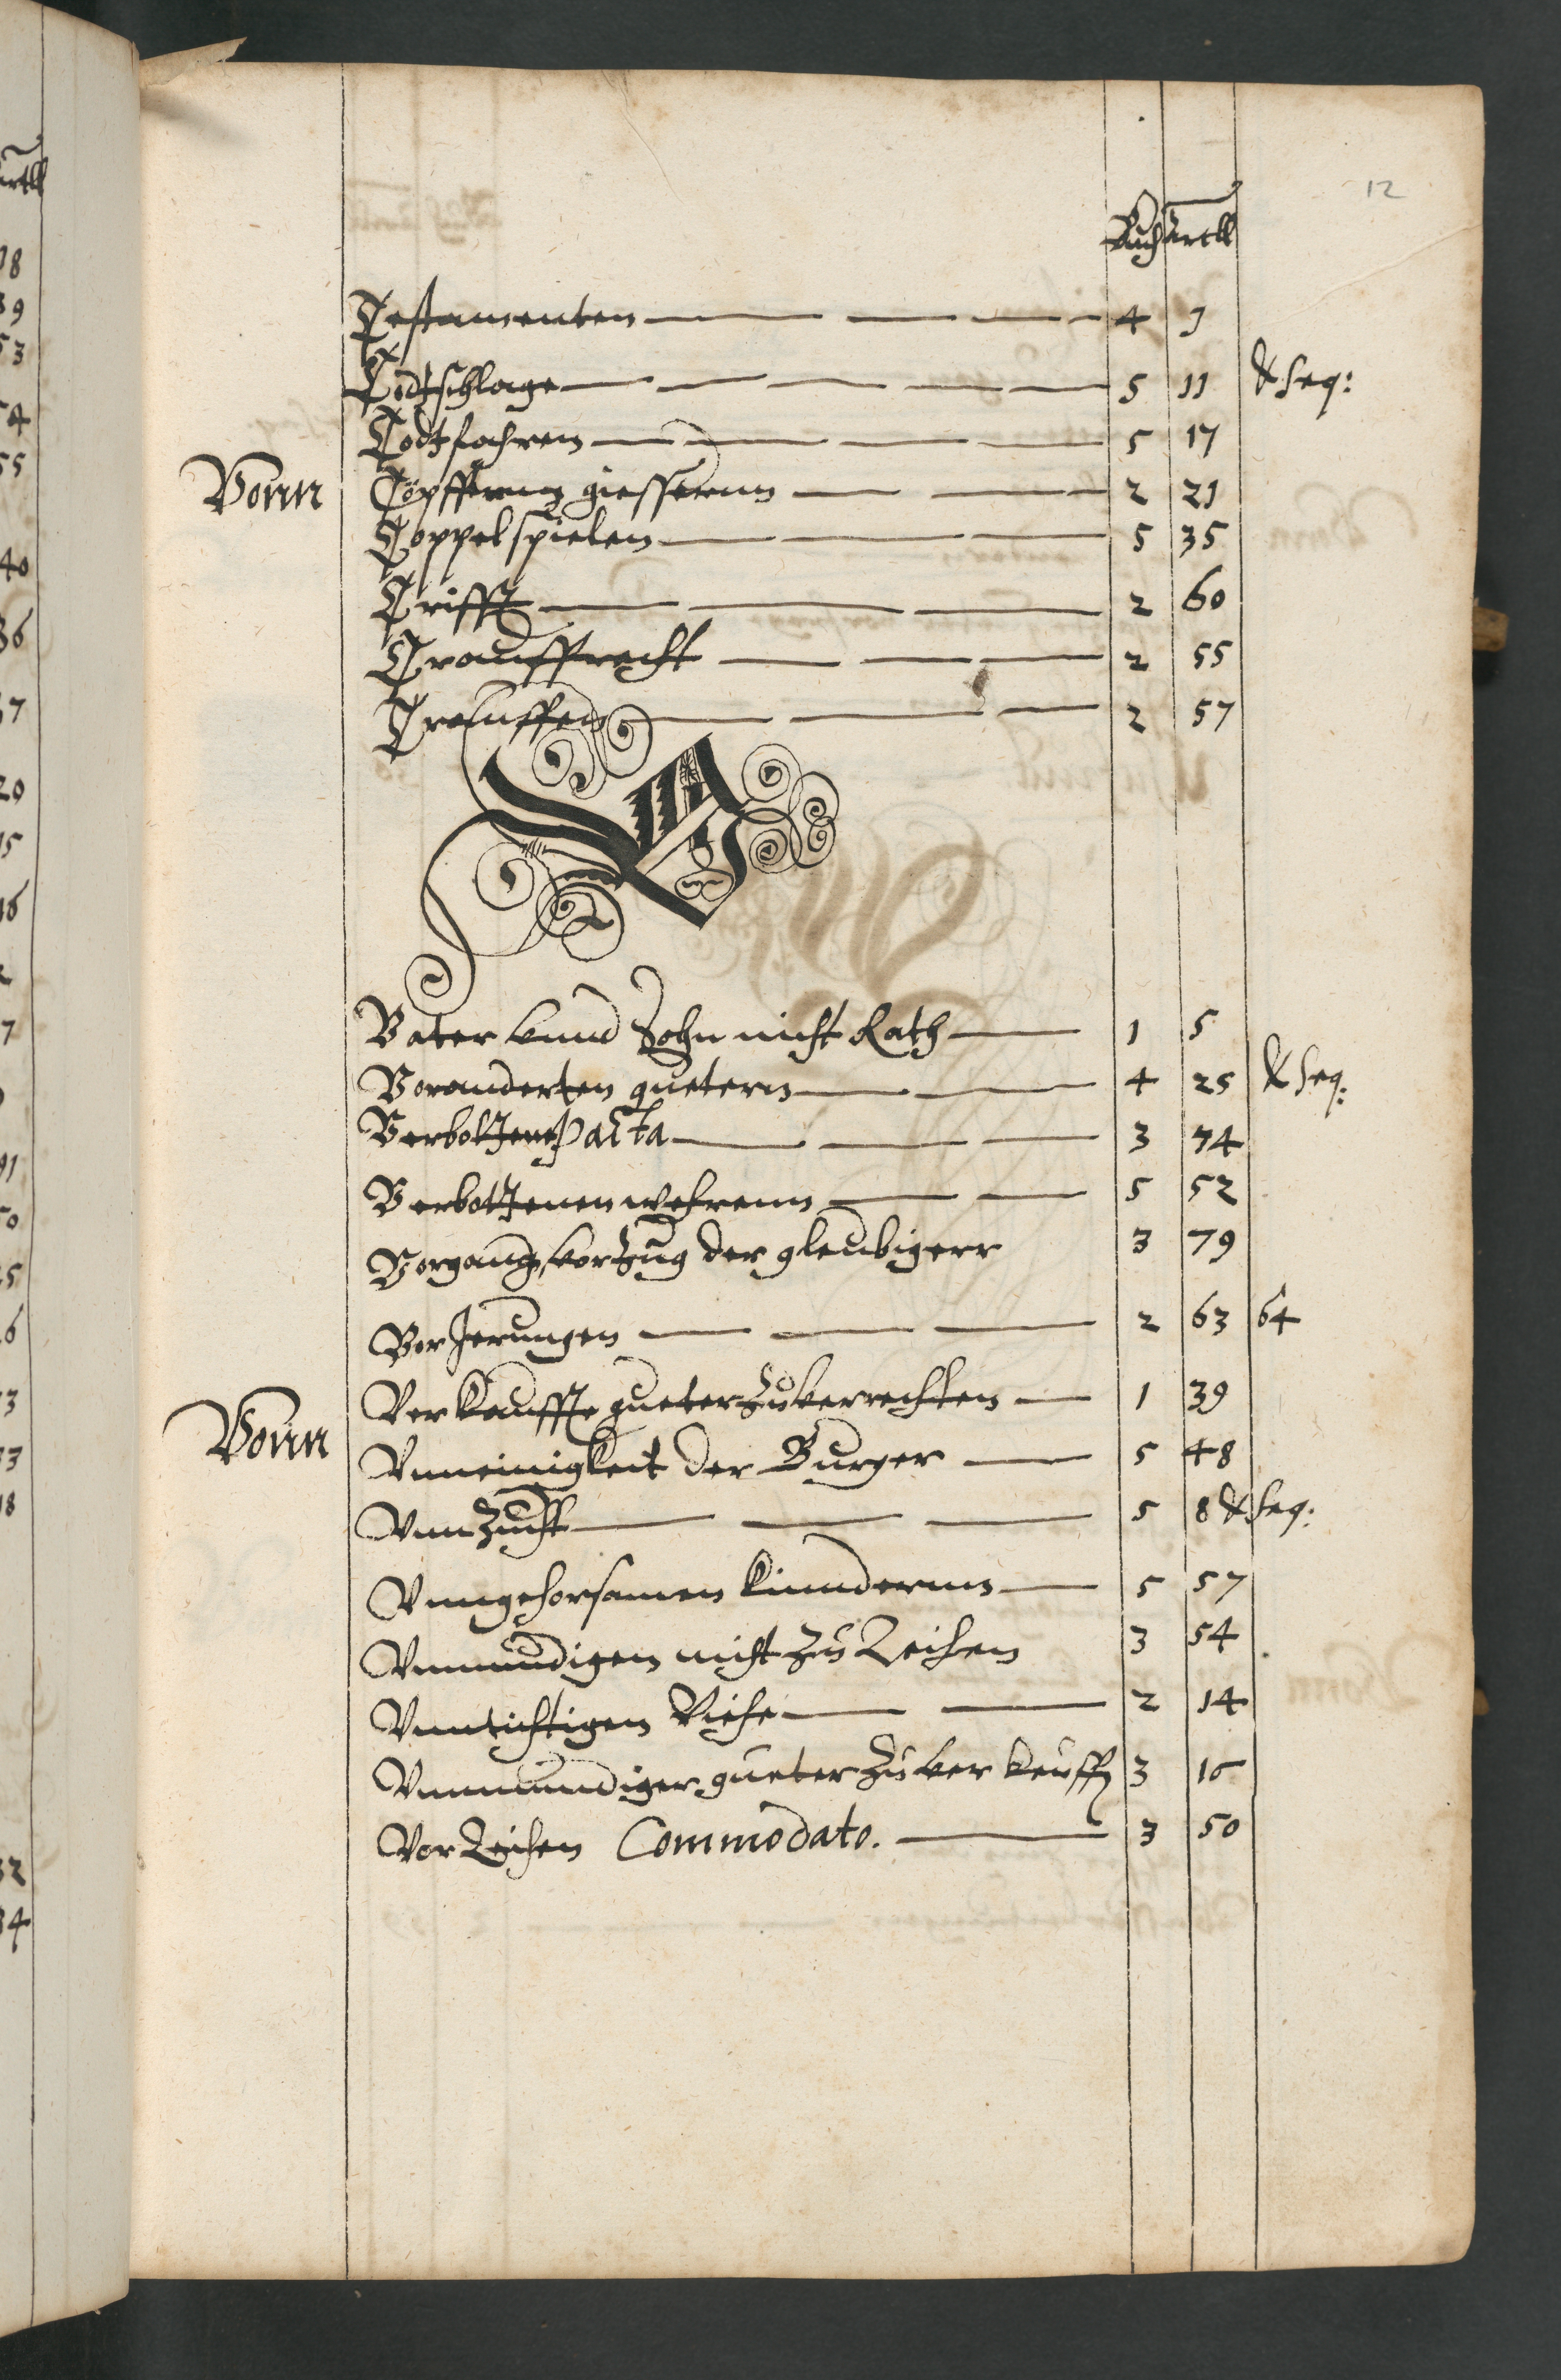 12
Buch Artll
Testamenten 4 1
Todtschlage 5 11 & seq:
Todtfahren 5 17
Vonn Töpffernn giessernn 2 21
Toppelspielen 5 35
Trifft 2 60
Trauffrecht 2 55
Trauffen 2 57
V
Vater vnnd Sohn nicht Rath 1 5
Voranderten guetern 4 25 & seq:
Verbottene Pacta 3 74
Verbottenen wehrenn 5 52
Vorgang, vorzug der gleubigerr 3 79
Vor Jerungen 2 63 64
Verkauffte gueter zuverrechten 1 39
Vonn Vnneinigkeit der Burger 5 48
Vnnzucht 5 8 & seq:
Vnngehorsamen kinndernn 5 57
Vnmundigen nicht zu Leihen 3 54
Vnntichtigen Viehe 2 14
Vnmundiger gueter zu verkeuffen 3 16
Vorleihen Commodato. 3 50